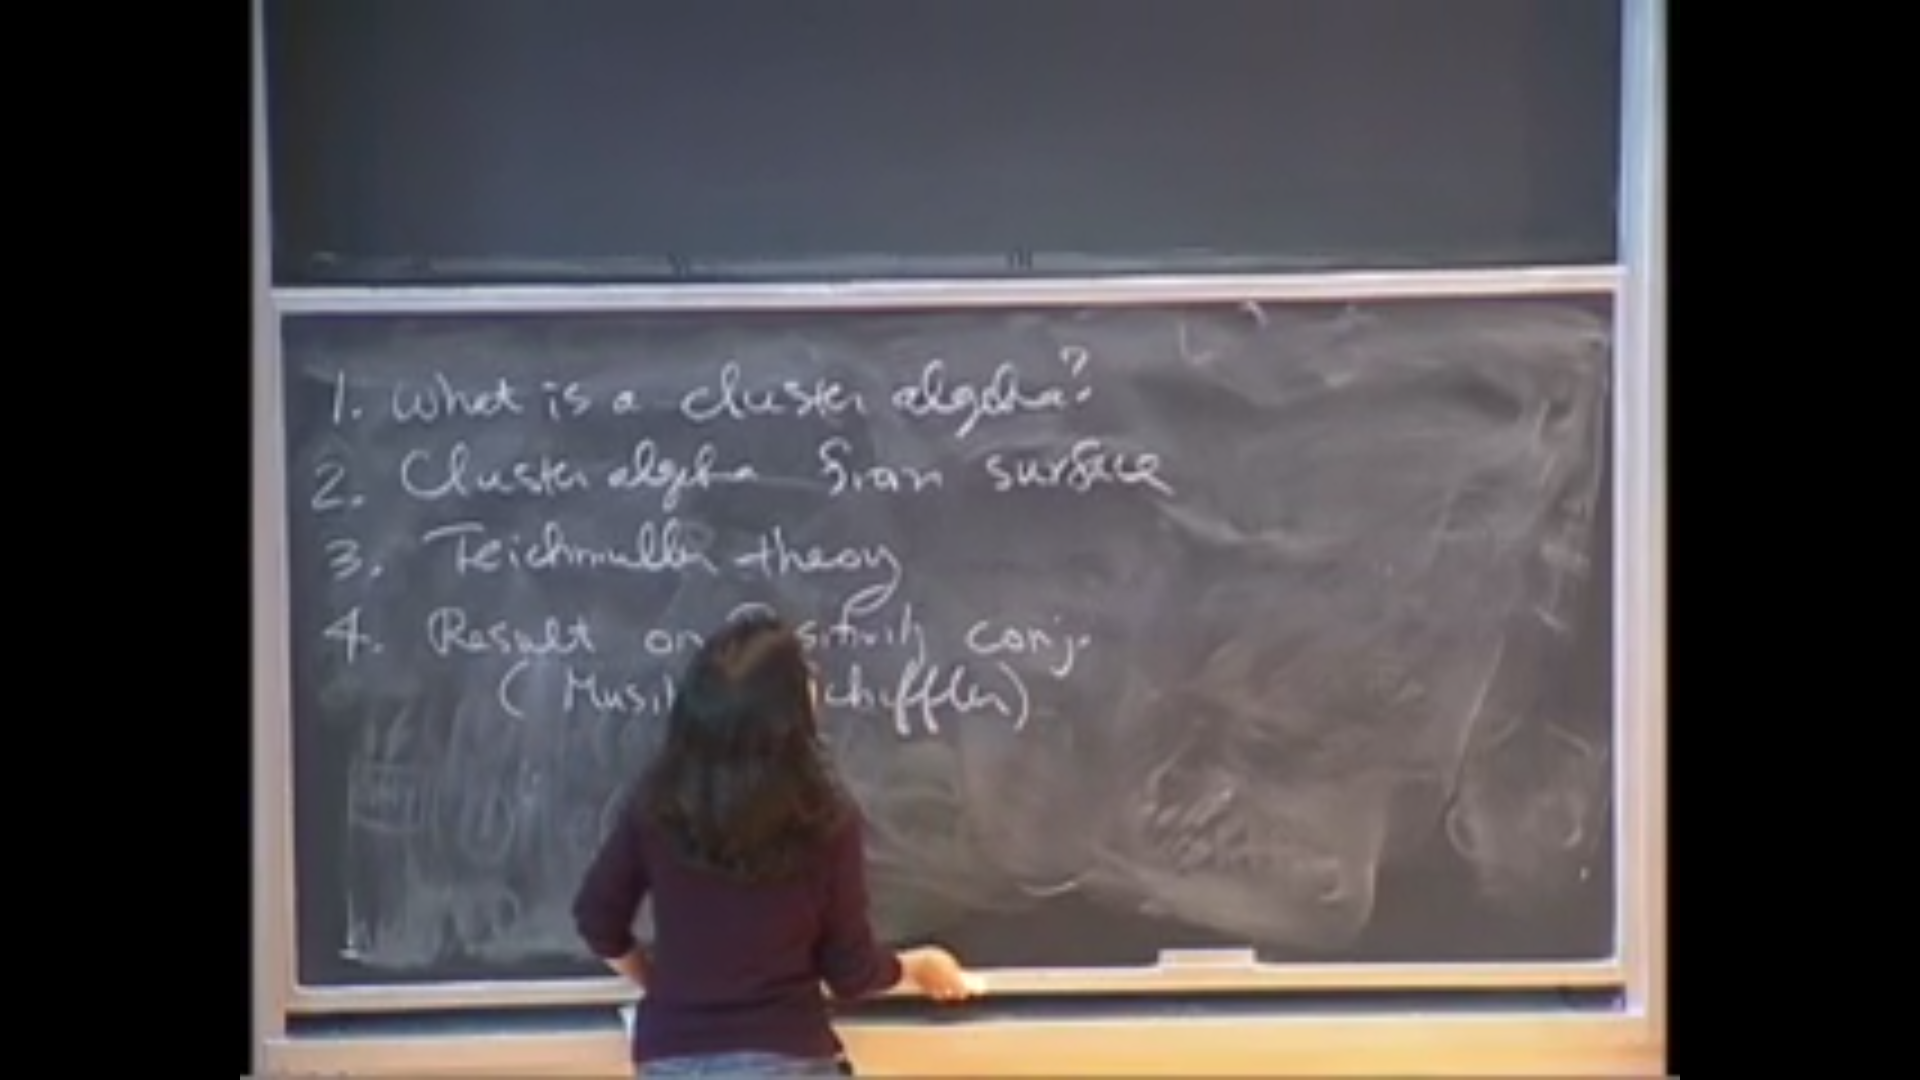 1. What is a cluster algebra?
2. Cluster algebra from surface
3. Teichmuller theory
4. Result on Positivity conj.
(Musik Schiffler)